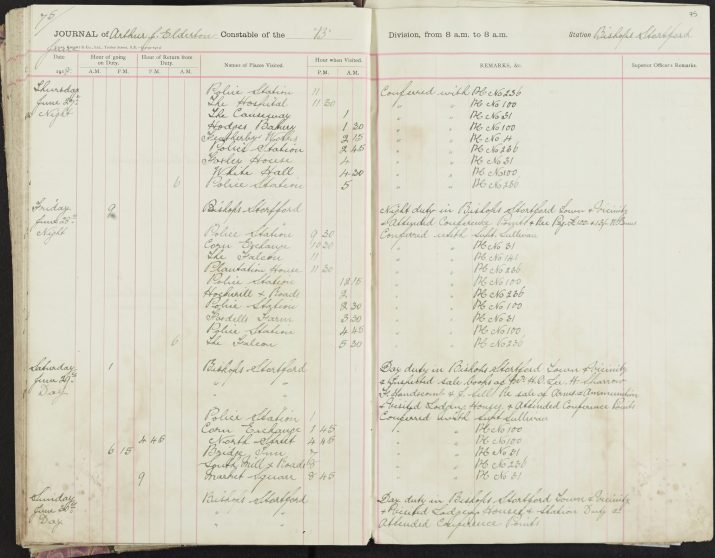 75
75
JOURNAL of Arthur J. Elderton Constable of the "B" Division, from 8 a.m. to 8 a.m. Station Bishops Stortford
Date Hour of going on Duty. Hour of Return from Duty. Names of Places Visited. Hour when Visited. REMARKS, &c. Superior Officer's Remarks.
191 A.M. P.M. A.M. P.M. P.M. A.M.
Thursday Police Station 11 Conferred with PC No 236
June The Hospital 11 30 " " PC No 100
Night The Causeway 1 " " PC No 31
Hodges Bakery 1 30 " " PC No 100
2 15 " " PC No 4
Police Station 2 45 " " PC No 236
House 4 " " PC No 31
White Hall 4 30 " " PC No 100
6 Police Station 5 " " PC No 236
Friday 9 Bishops Stortford Night duty in Bishops Stortford Town & Vicinity
June & Attended Conference Points
Night Police Station 9 30 Conferred with Supt Sullivan
Corn Exchange 10 30 " " PC No 31
The Falcon 11 " " PC No
Plantation House 11 30 " " PC No 236
Police Station 12 15 " " PC No 100
Hockerill X Roads 2 " " PC No 236
Police Station 2 30 " " PC No 100
Farm 3 30 " " PC No 31
Police Station 4 45 " " PC No 100
6 The Falcon 5 30 " " PC No 236
Saturday 1 Bishops Stortford Day duty in Bishops Stortford Town & Vicinity
June " " & Inspected Sale Books of
Day " " & J. Sell the sale of Arms & Ammunition
& Visited Lodging Houses, & Attended Conference Points
Police Station 1 Conferred with Supt Sullivan
Corn Exchange 1 45 " " PC No 100
4 45 North Street 4 45 " " PC No 100
6 15 Bridge Inn 7 " " PC No 31
South Mill X Roads 8 " " PC No 236
9 Market Square 8 45 " " PC No 31
Sunday Bishops Stortford Day duty in Bishops Stortford Town & Vicinity
June " " & Visited Lodging Houses & Station Duty &
Day " " Attended Conference Points